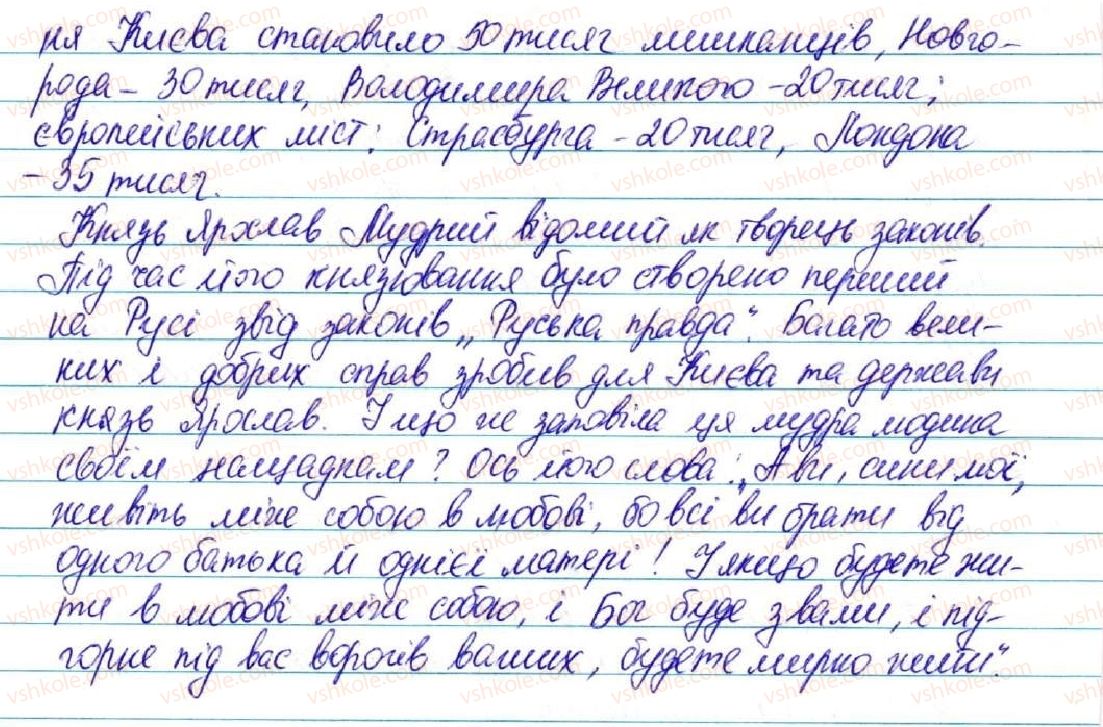 ня Києва становило 50 тисяч мешканців, Новго-
рода - 30 тисяч, Володимира Великого - 20 тисяч;
європейських міст: Страсбурга - 20 тисяч, Лондона
- 35 тисяч.
Князь Ярослав Мудрий відомий як творець законів.
Під час його князювання було створено перший
на Русі звід законів „Руська правда". Багато вели-
ких і добрих справ зробив для Києва та держави
князь Ярослав. І що же заповіла ця мудра людина
своїм нащадкам? Ось його слова: „А ви, сини мої,
живіть між собою в любові, бо всі ви брати від
одного батька й однієї матері! І якщо будете жи-
ти в любові між собою, і Бог буде з вами, і під-
горне під вас ворогів ваших, будете мирно жити".
vshkole.com